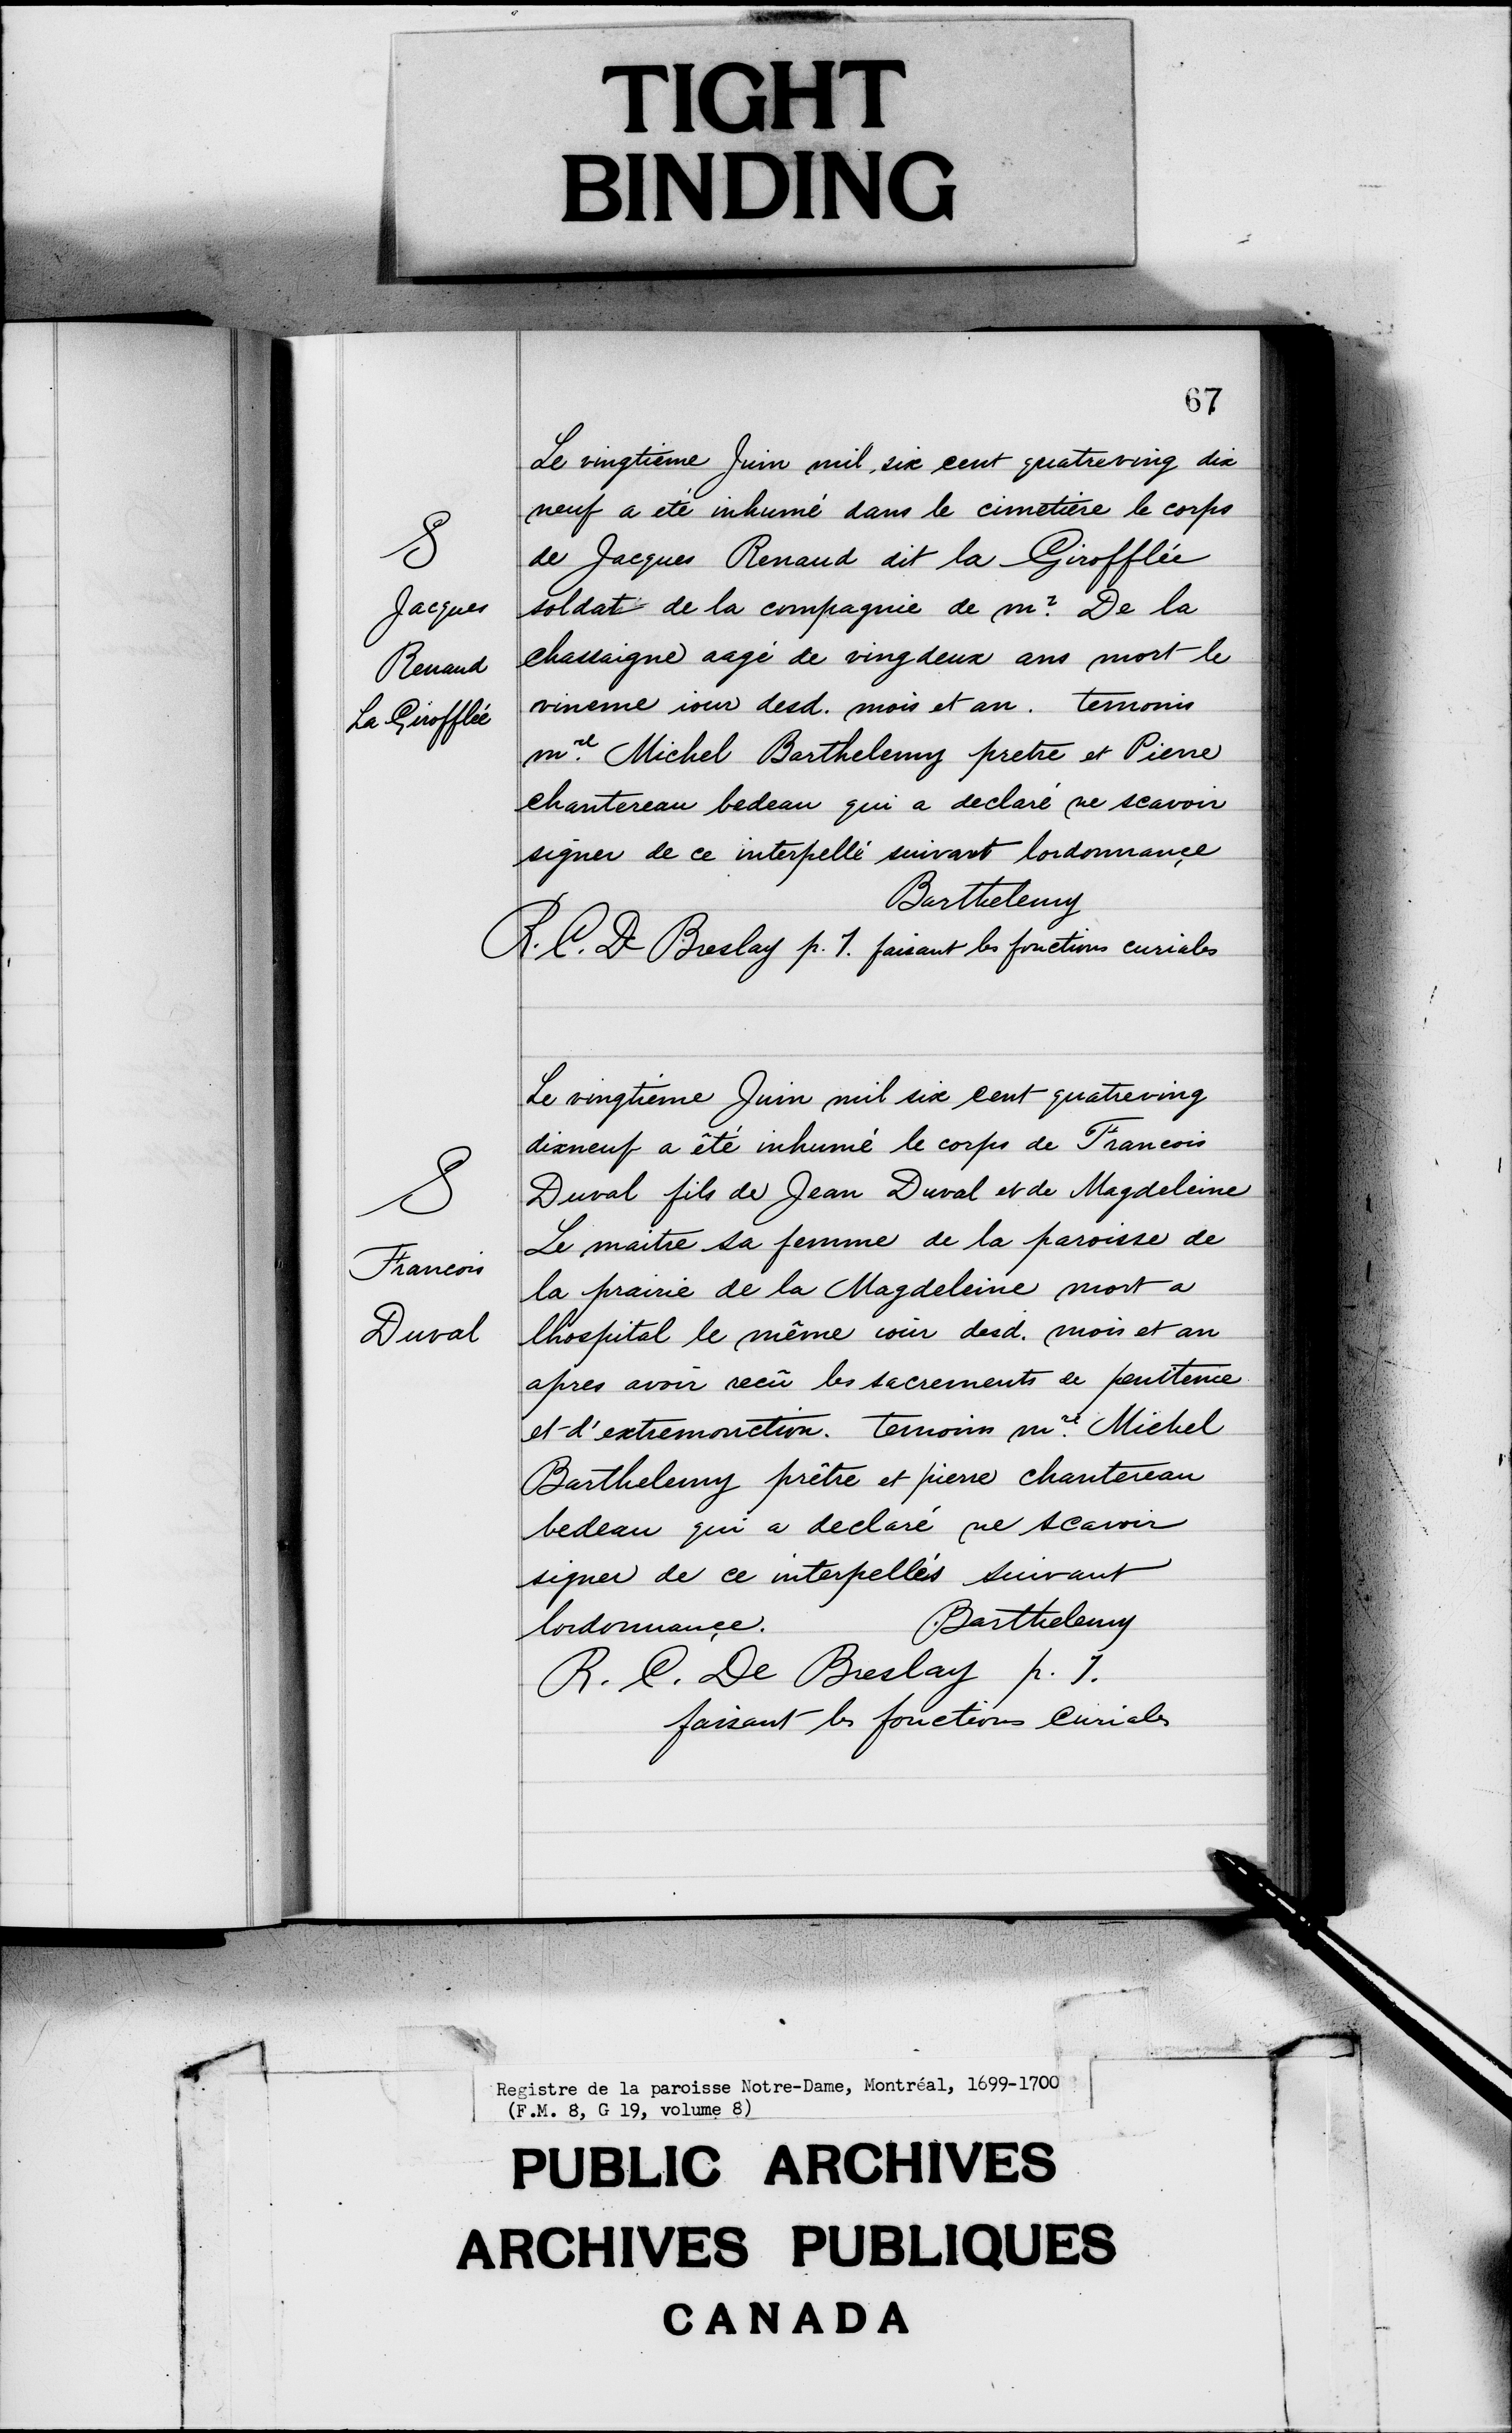 TIGHT
BINDING
67
Le vingtième Juin mil six cent quatreving dix
neuf a eté inhumé dans le cimetière le corps
S
de Jacques Renaud dit la Girofflée
Jacques
soldat de la compagnie de mr. De la
Renaud
chassaigne aagé de vingdeux ans mort le
La Girofflée
vineme iour desd. mois et an. temonis
mre. Michel Barthelemy pretre et Pierre
chantereau bedeau qui a declaré ne scavoir
signer de ce interpellé suivant lordonnançe
Barthelemy
R. C. De Breslay p. J. faisant les fonctions curiales
Le vingtième Juin mil six cent quatreving
dixneuf a êté inhumé le corps de Francois
S
Duval fils de Jean Duval et de Magdeleine
Le maitre sa femme de la paroisse de
Francois
la prairie de la Magdeleine mort a
Duval
lhospital le même iour desd. mois et an
apres avoir recû les sacrements de penitence
et d'extremonction. temoins mre. Michel
Barthelemy prêtre et pierre chantereau
bedeau qui a declaré ne scavoir
signer de ce interpellés suivant
lordonnançe. Barthelemy
R. C. De Breslay p. J.
faisant les fonctions curiales
Registre de la paroisse Notre-Dame, Montréal, 1699-1700
(F.M. 8, G 19, volume 8)
PUBLIC ARCHIVES
ARCHIVES PUBLIQUES
CANADA